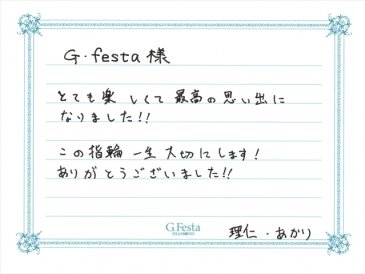 G.festa 様
とても楽しくて最高の思い出に
なりました!!
この指輪一生大切にします!
ありがとうございました!!
G.Festa
理仁・あかり